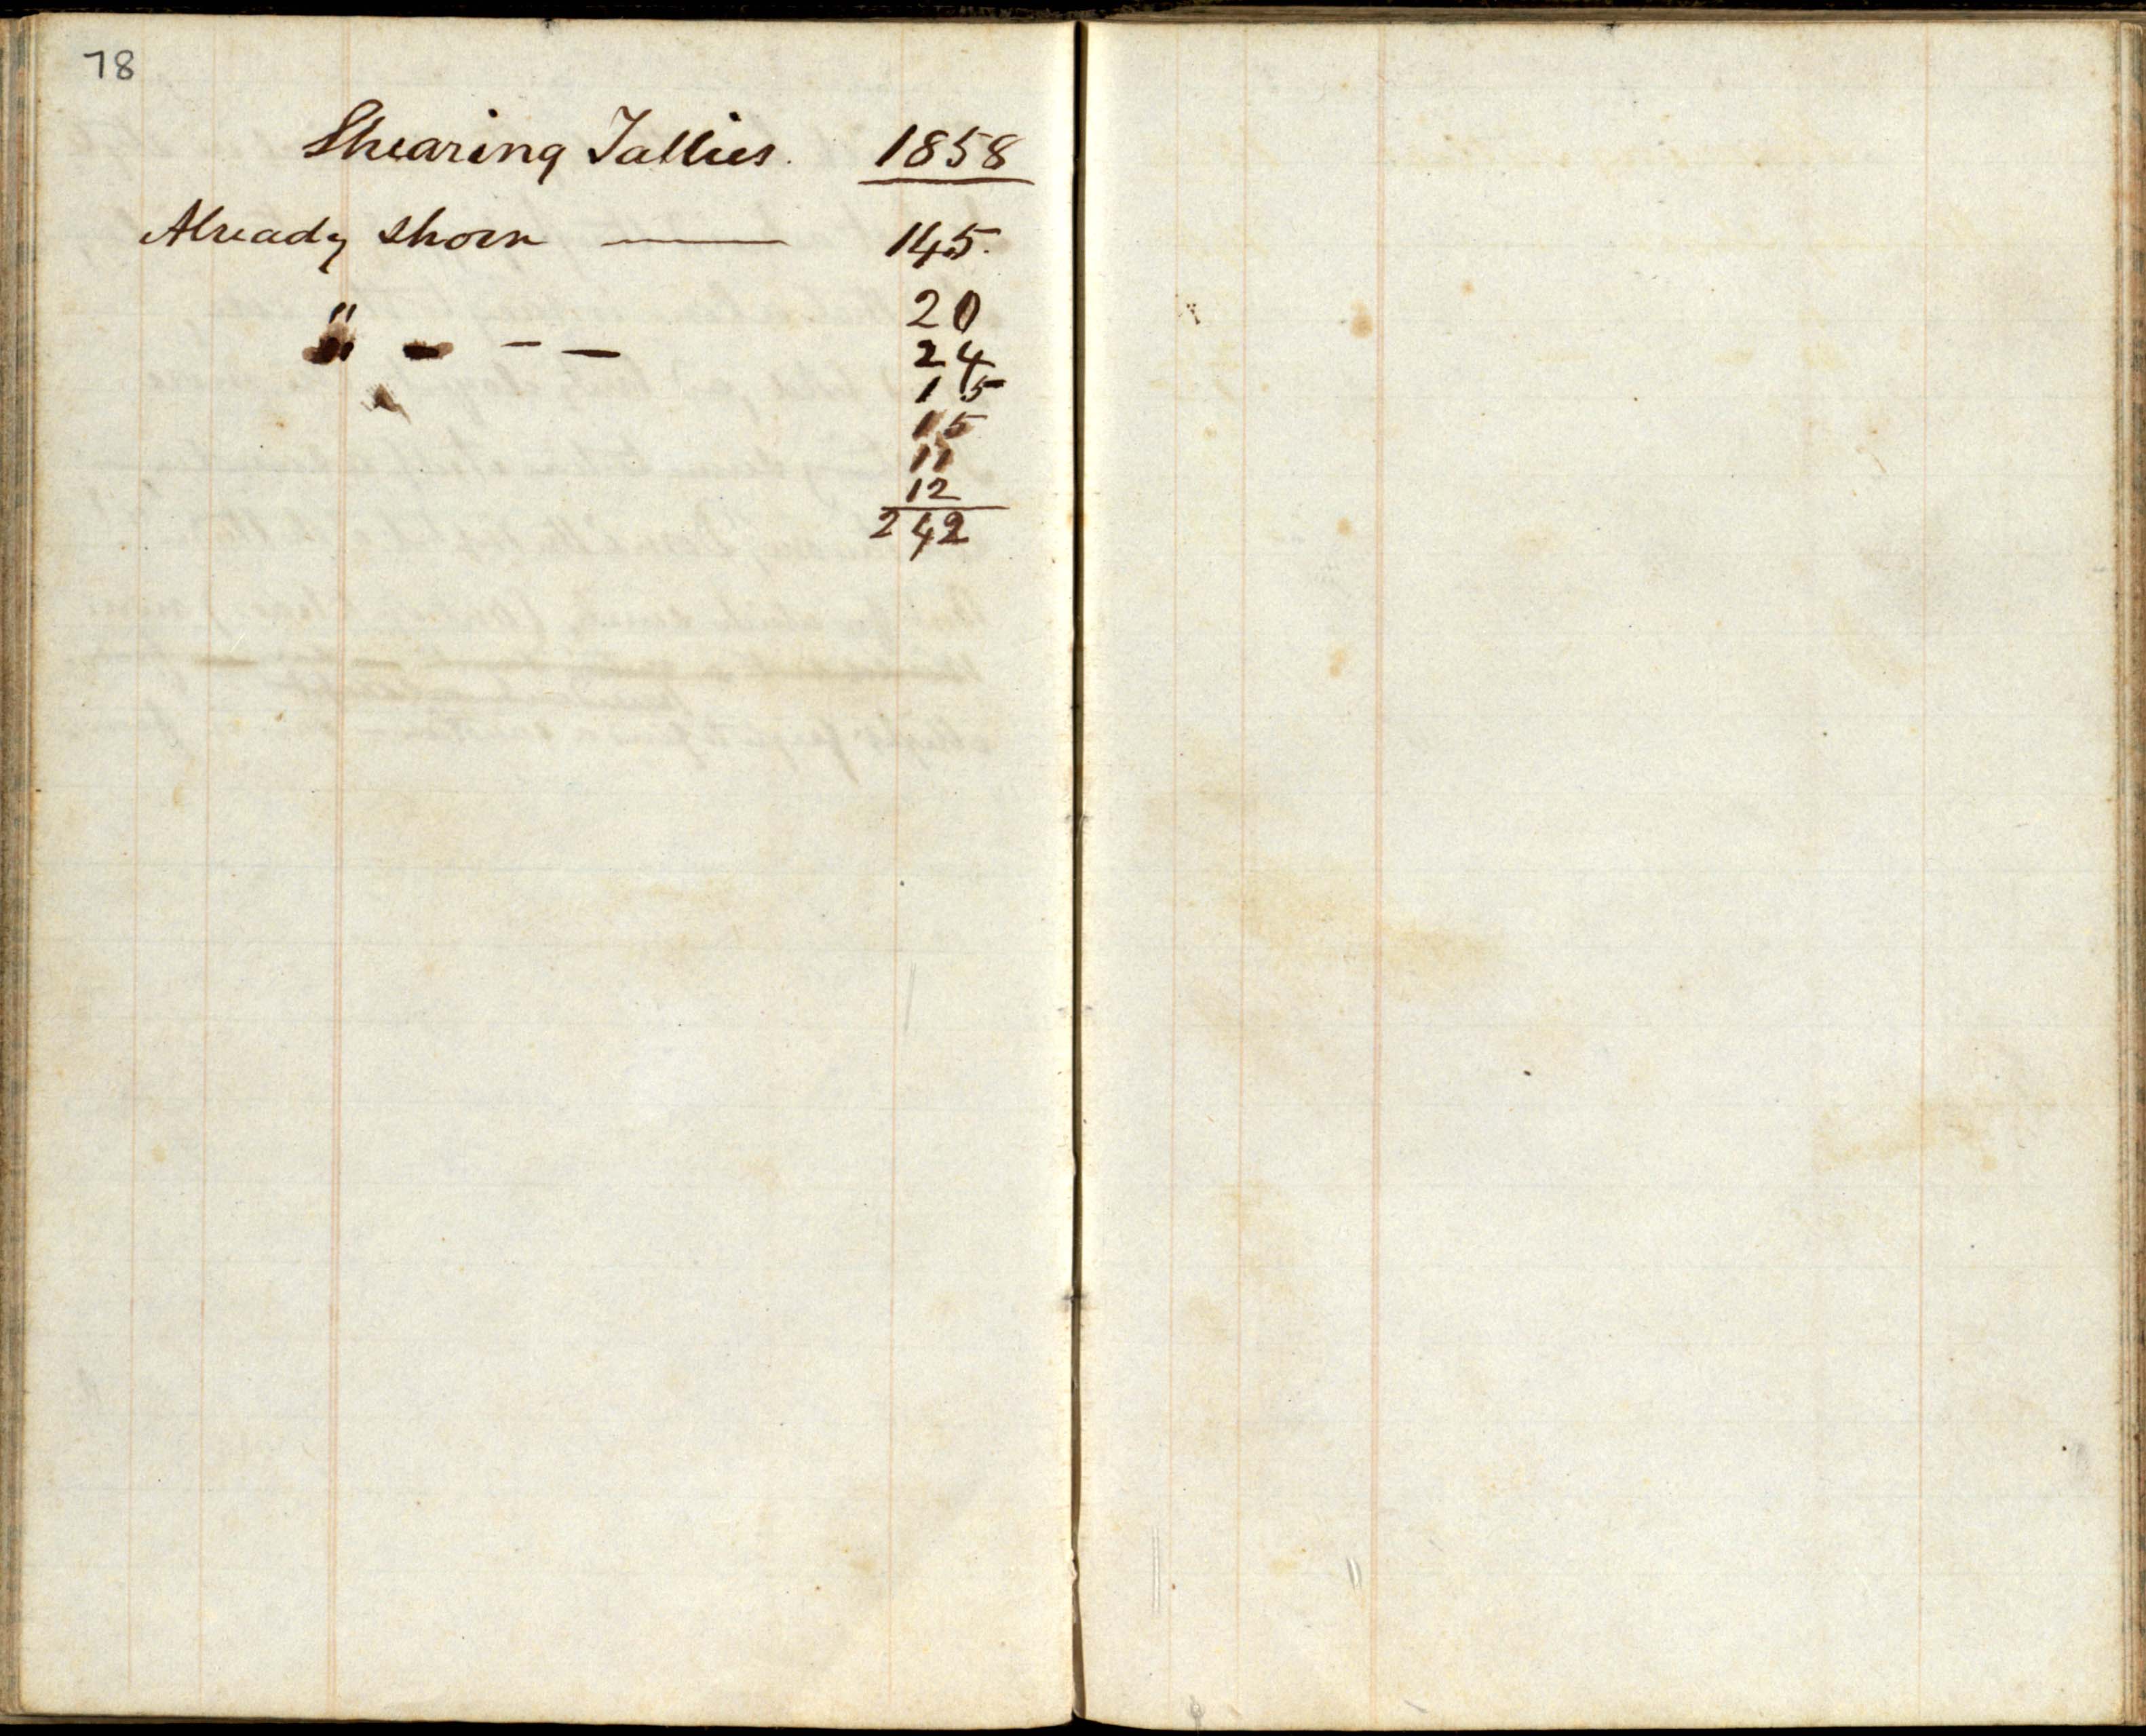 78
Shearing Tallies. 1858
Already shorn —— 145.
" 20
" - - - 24
15
15
11
12
242